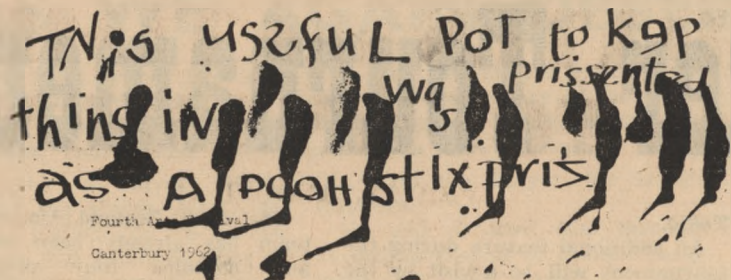 THis uszfuL PoT to kgp
thing iN was prissented
as A POOH stIx pris
Fourth Arts Festival
Canterbury 1962